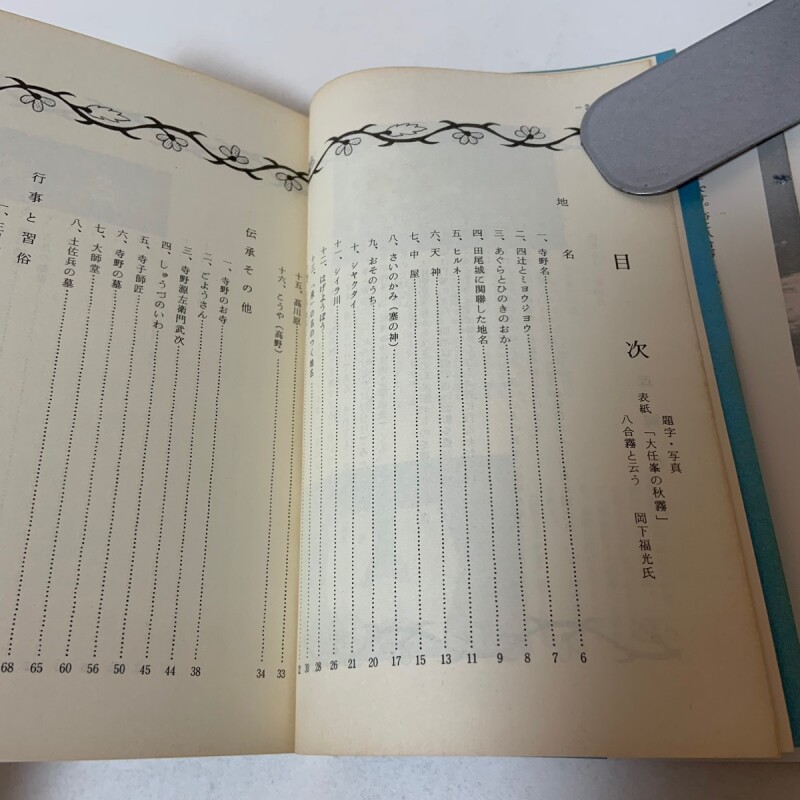 目次
題字・写真
表紙 「大任峯の秋霧」
八合霧と云う 岡下福光氏
地名
一、寺野名……6
二、四辻とミョウジョウ……7
三、あぐらとひのきのおか……8
四、田尾城に関聯した地名……9
五、ヒルネ……11
六、天神……13
七、中屋……15
八、さいのかみ（塞の神）……17
九、おそのうち……20
十、シャクタイ……21
十一、シイラ川……26
十二、はげようぼう……28
十三、の名のつく地名……30
十五、高川原……33
十六、とうや（高野）……34
伝承その他
一、寺野のお寺……38
二、ごようさん……44
三、寺野源左衛門武次……45
四、しゅうづのいわ……50
五、寺子師匠……56
六、寺野の墓……60
七、大師堂……65
八、土佐兵の墓……68
行事と習俗
一、